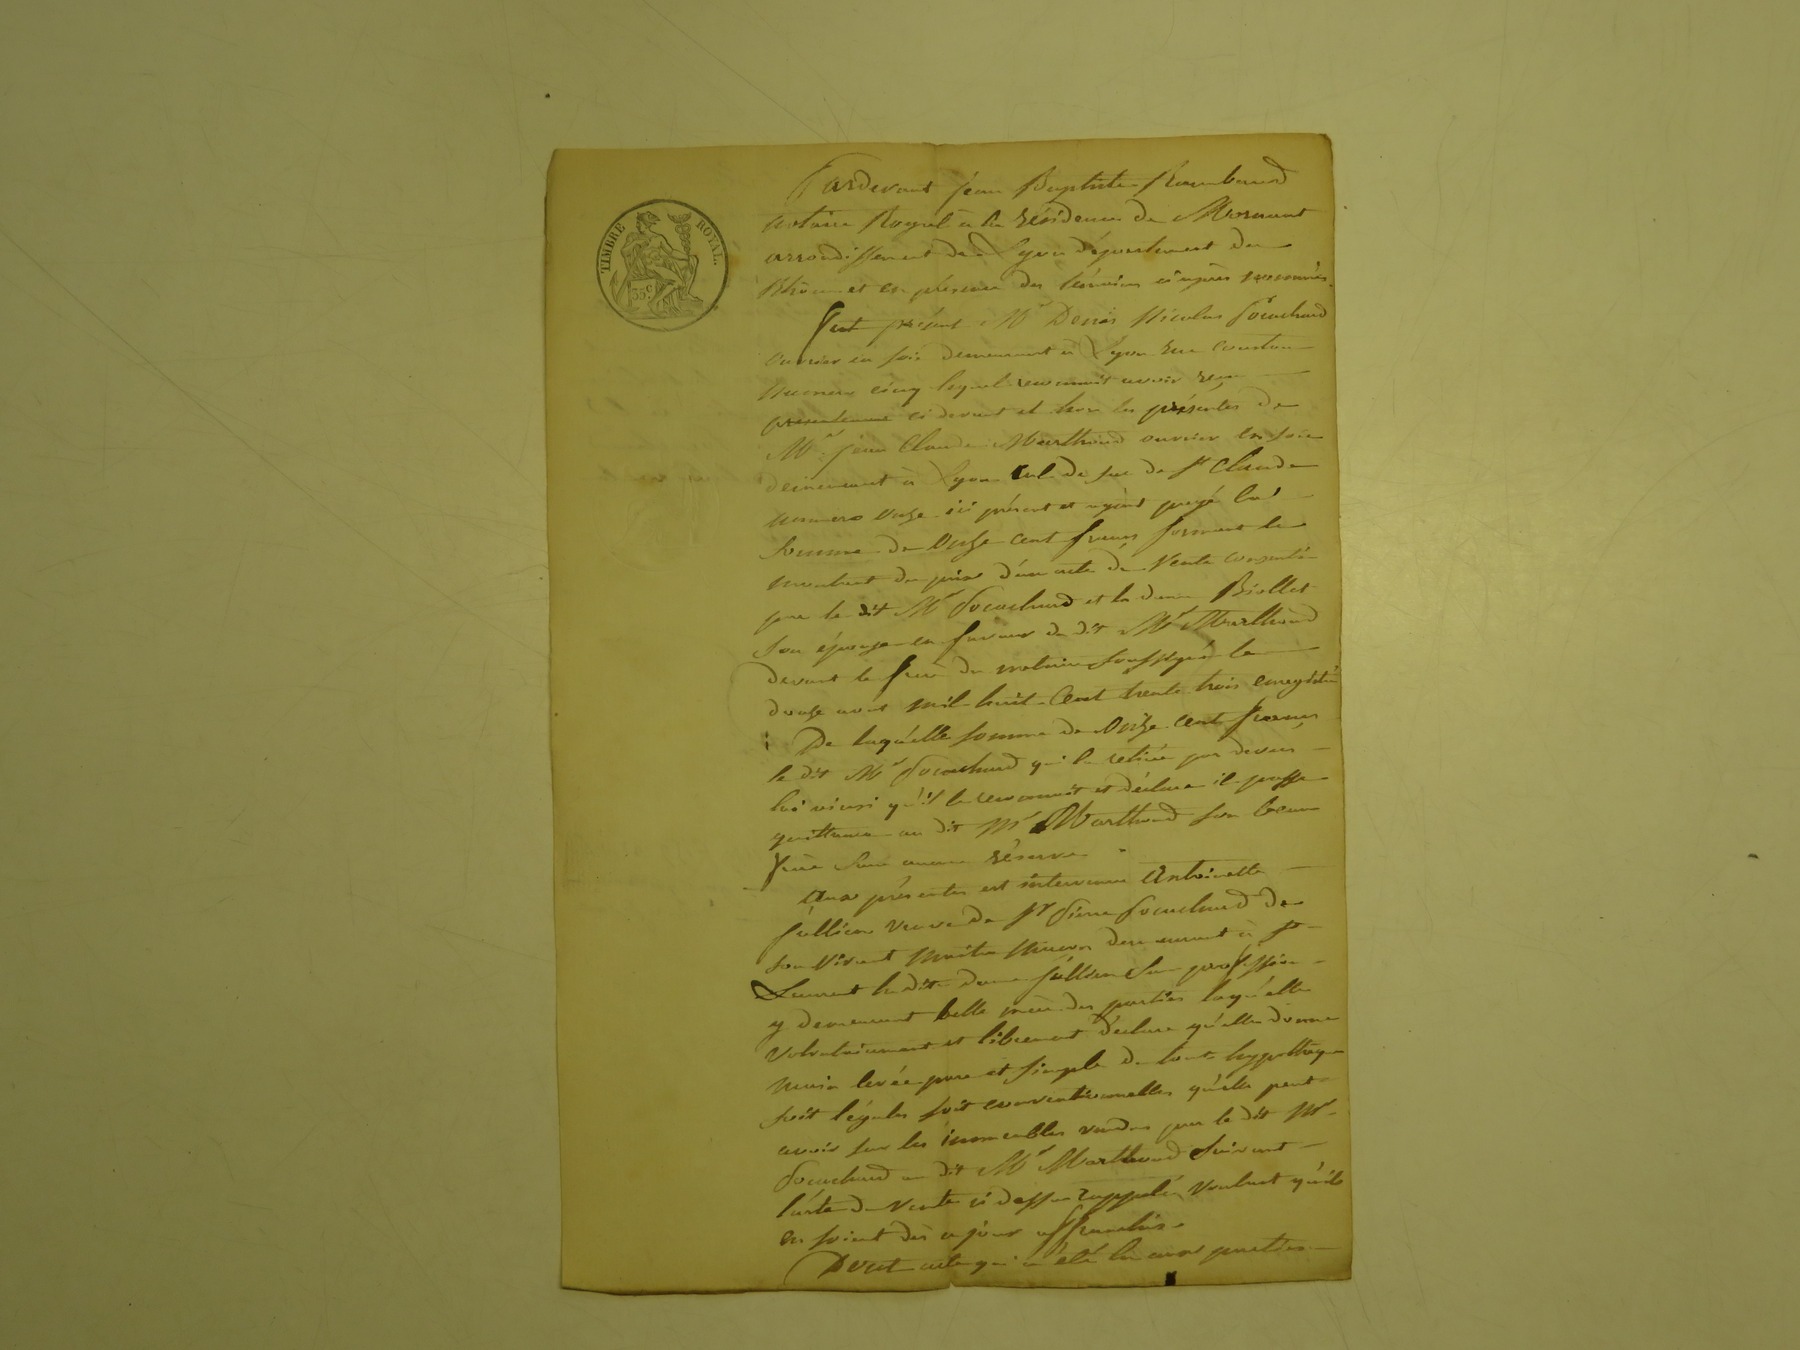 TIMBRE ROYAL.
35 c.
Pardevant jean Baptiste Rambaud
notaire Royal à la résidence de Mornant
arrondissement de Lyon département du
Rhône et en présence des témoins ci après nommés.
fut présent Mr Denis Nicolas
ouvrier en soie demeurant à Lyon rue coustou
numero cinq lequel reconnait avoir reçu
ci devant et hors les présentes de
Mr jean Claude Marthoud ouvrier en soie
demeurant à Lyon cul de sac de St Claude
numero onze ici présent et ayant payé la
somme de onze cent francs formant le
montant du prix d'un acte de vente consentie
par le dit Mr et la dame Biollet
son épouse en faveur du dit Mr Marthoud
devant le frère du notaire soussigné le
douze aout mil huit cent trente trois enregistré
De laquelle somme de onze cent francs
le dit Mr qui la retirée par devers
lui ainsi qu'il le reconnait et déclare il passe
quittance au dit Mr Marthoud son beau
frère sans aucune réserve
Aux présentes est intervenue Antoinette
veuve de Sr Pierre de
son vivant maitre maçon demeurant à St
Laurent la dite dame sans profession
y demeurant belle mère des parties laquelle
volontairement et librement déclare qu'elle donne
main levée pure et simple de toute hypothèque
soit légales soit conventionnelles qu'elle peut
avoir sur les immeubles vendus par le dit Mr
au dit Mr Marthoud suivant
l'acte de vente ci dessus rappelé, voulant qu'ils
en soient dès ce jour affranchis.
Dont acte qui a été lu aux parties